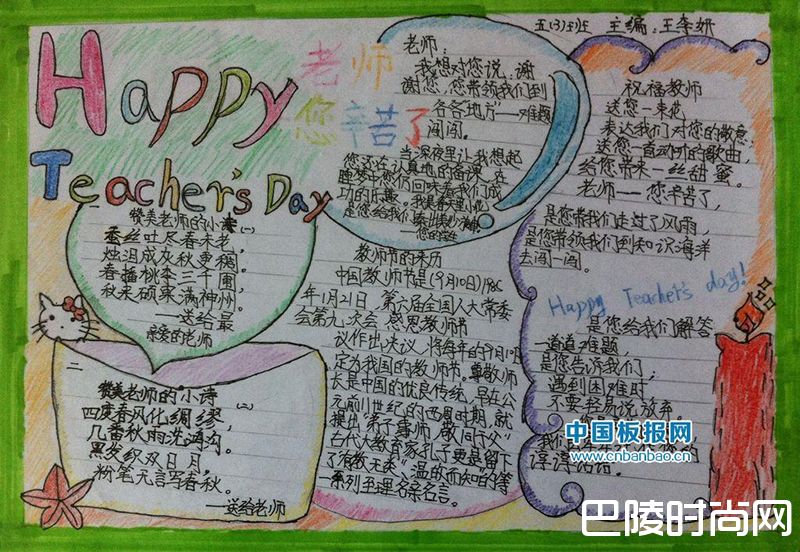 Happy
Teacher's Day
老师
您辛苦了
五(3)班 主编:王李妍
赞美老师的小诗(一)
春蚕吐尽春未老,
烛泪成文秋更稠。
春播桃李三千圃,
秋来硕果满神州。
——送给最
亲爱的老师
二
赞美老师的小诗
(二)
四度春风化绸缪,
几番秋雨洗鸿沟。
黑发积霜织日月,
粉笔无言写春秋。
——送给老师
老师:
我想对您说:谢
谢您,您带领我们到
各各地方——难题
闯闯。
当深夜里让我想起
您还在认真地备课,在
睡梦中您仍回味着我们成
功的乐趣。
是您给我们
——您的学生
教师节的来历
中国教师节是(9月10日)1985
年1月21日,第六届全国人大常委
会第九次会 感恩教师节
议作出决议,将每年的9月10日
定为我国的教师节。尊敬师
长是中国的优良传统,早在公
元前11世纪的西周时期,就
提出“弟子事师,敬同于父”
古代大教育家孔子更是留下
了“有教无类”“温故而知”的等
一系列至理名亲名言。
祝福教师
送您一束花
表达我们对您的敬意。
送您一首动听的歌曲,
给您带来一丝甜蜜。
老师——您辛苦了,
是您带我们走过了风雨,
是您带领我们到知识海洋
去闯一闯。
Happy Teacher's day!
是您给我们解答
一道道难题,
是您告诉我们;
遇到困难时
不要轻易说放弃。
我们
谆谆话语。
中国板报网
www.cnbanbao.cn
巴陵时尚网